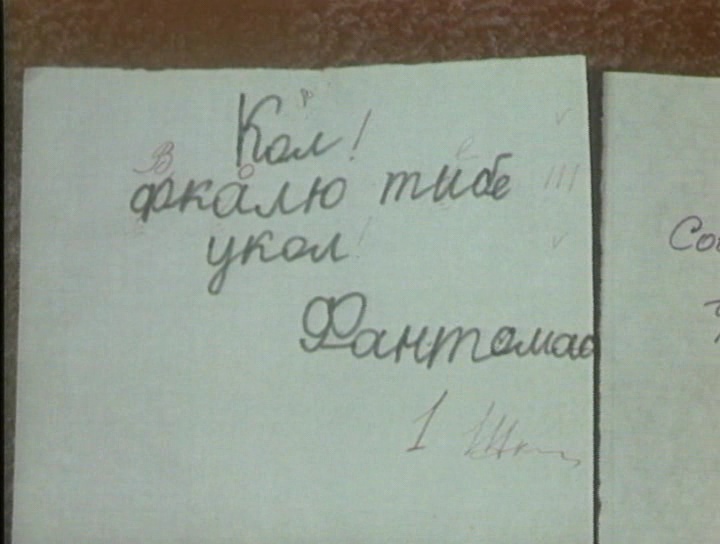 Кол!
фкалю тибе
укол!
Фантомас
1
Со